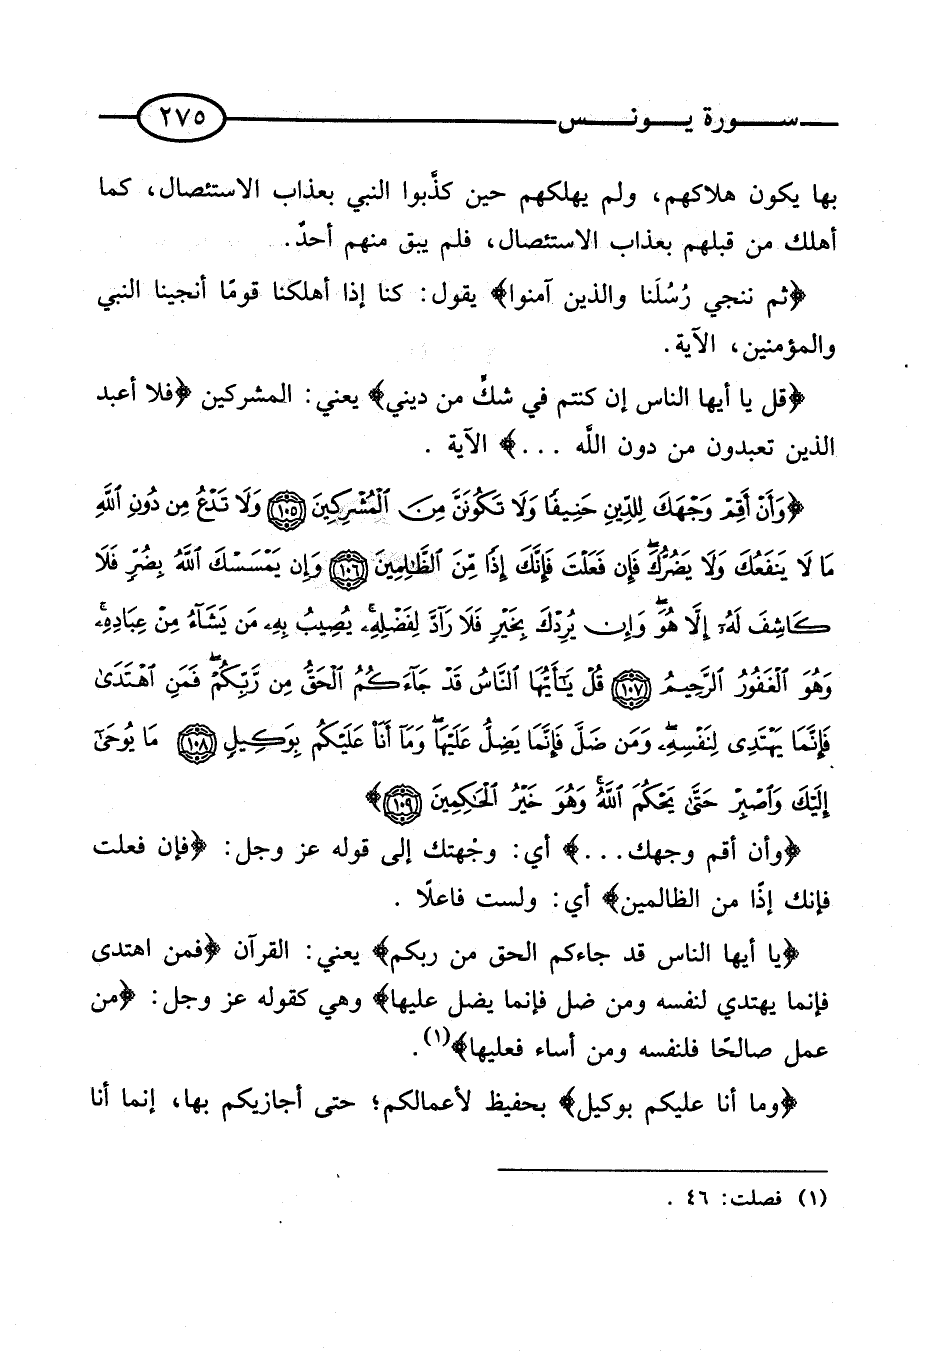 سورة يونس ٢٧٥
بها يكون هلاكهم، ولم يهلكهم حين كذَّبوا النبي بعذاب الاستئصال، كما
أهلك من قبلهم بعذاب الاستئصال، فلم يبق منهم أحدٌ.
﴿ثم ننجي رُسُلَنا والذين آمنوا﴾ يقول: كنا إذا أهلكنا قومًا أنجينا النبي
والمؤمنين، الآية.
﴿قل يا أيها الناس إن كنتم في شكٍّ من ديني﴾ يعني: المشركين ﴿فلا أعبد
الذين تعبدون من دون اللَّه ...﴾ الآية .
﴿وَأَنْ أَقِمْ وَجْهَكَ لِلدِّينِ حَنِيفًا وَلَا تَكُونَنَّ مِنَ ٱلْمُشْرِكِينَ ١٠٥ وَلَا تَدْعُ مِن دُونِ ٱللَّهِ
مَا لَا يَنفَعُكَ وَلَا يَضُرُّكَۖ فَإِن فَعَلْتَ فَإِنَّكَ إِذًا مِّنَ ٱلظَّٰلِمِينَ ١٠٦ وَإِن يَمْسَسْكَ ٱللَّهُ بِضُرٍّ فَلَا
كَاشِفَ لَهُۥٓ إِلَّا هُوَۖ وَإِن يُرِدْكَ بِخَيْرٍ فَلَا رَآدَّ لِفَضْلِهِۦۚ يُصِيبُ بِهِۦ مَن يَشَآءُ مِنْ عِبَادِهِۦۚ
وَهُوَ ٱلْغَفُورُ ٱلرَّحِيمُ ١٠٧ قُلْ يَٰٓأَيُّهَا ٱلنَّاسُ قَدْ جَآءَكُمُ ٱلْحَقُّ مِن رَّبِّكُمْۖ فَمَنِ ٱهْتَدَىٰ
فَإِنَّمَا يَهْتَدِى لِنَفْسِهِۦۖ وَمَن ضَلَّ فَإِنَّمَا يَضِلُّ عَلَيْهَاۖ وَمَآ أَنَا۠ عَلَيْكُم بِوَكِيلٍ ١٠٨ مَا يُوحَىٰٓ
إِلَيْكَ وَٱصْبِرْ حَتَّىٰ يَحْكُمَ ٱللَّهُۚ وَهُوَ خَيْرُ ٱلْحَٰكِمِينَ ١٠٩﴾
﴿وأن أقم وجهك...﴾ أي: وجْهتك إلى قوله عز وجل: ﴿فإن فعلت
فإنك إذًا من الظالمين﴾ أي: ولست فاعلًا .
﴿يا أيها الناس قد جاءكم الحق من ربكم﴾ يعني: القرآن ﴿فمن اهتدى
فإنما يهتدي لنفسه ومن ضل فإنما يضل عليها﴾ وهي كقوله عز وجل: ﴿من
عمل صالحًا فلنفسه ومن أساء فعليها﴾(١).
﴿وما أنا عليكم بوكيل﴾ بحفيظ لأعمالكم؛ حتى أجازيكم بها، إنما أنا
(١) فصلت: ٤٦ .